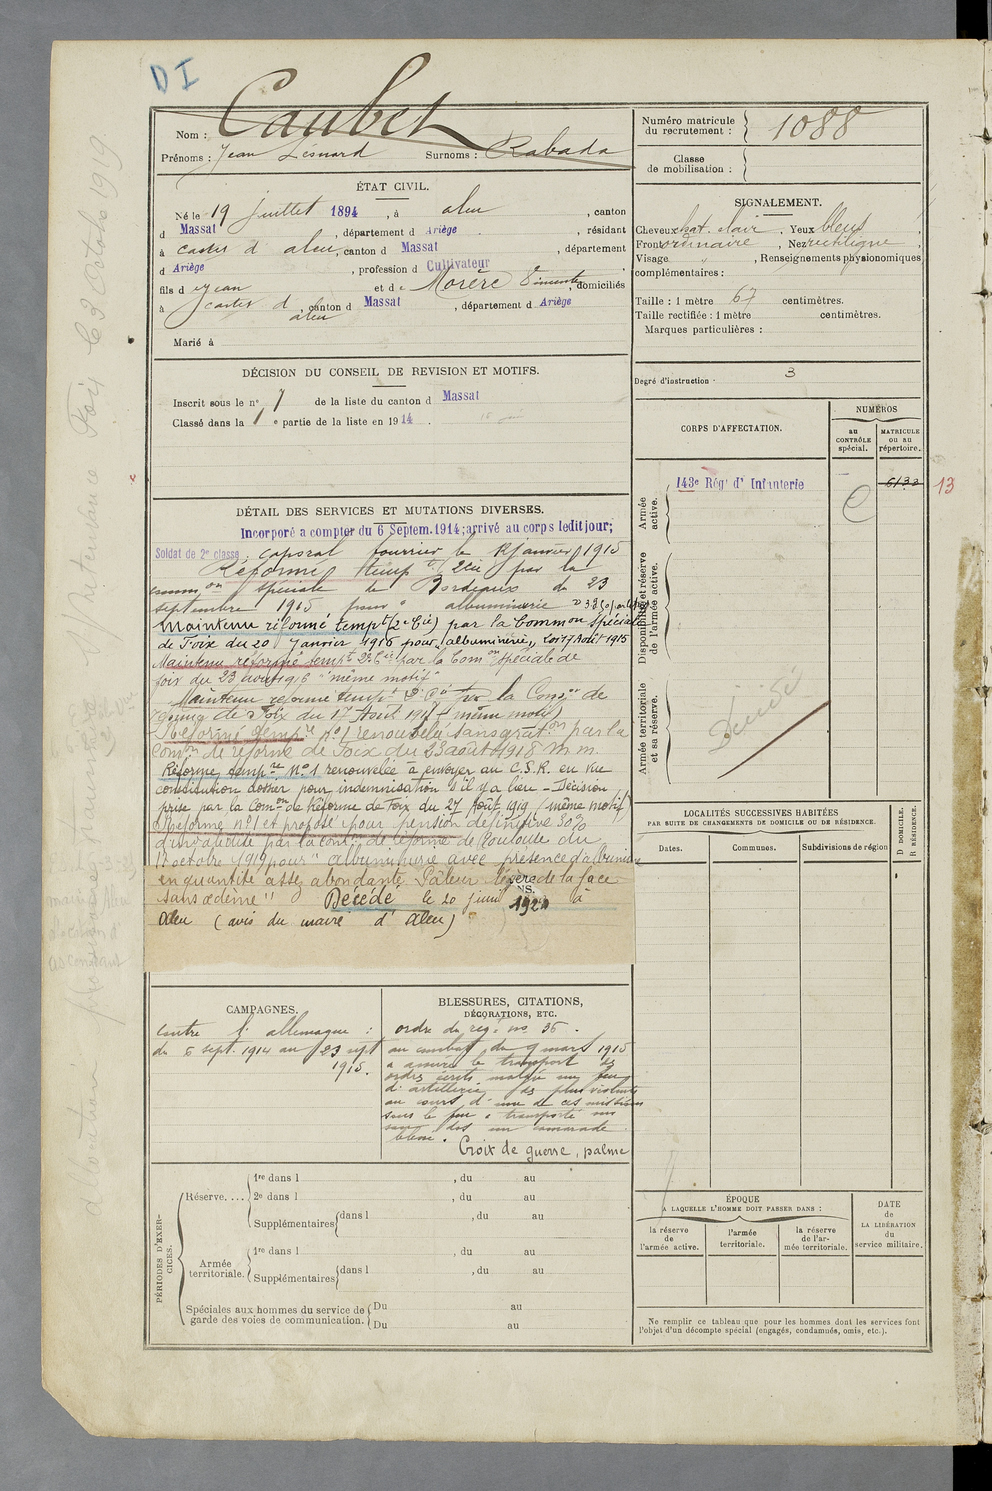 D I
Nom : Caubet
Prénoms : Jean Lésnard Surnoms : Rabada
Numéro matricule
du recrutement : 1088
Classe
de mobilisation :
ÉTAT CIVIL.
Né le 19 juillet 1894, à aleu, canton
d Massat, département d Ariège, résidant
à castes d aleu, canton d Massat, département
d Ariège, profession d Cultivateur
fils d e Jean et d e Morère domiciliés
à castes d aleu, canton d Massat, département d Ariège
Marié à
SIGNALEMENT.
Cheveux chat. clair. Yeux bleus,
Front ordinaire, Nez rectiligne,
Visage " , Renseignements physionomiques
complémentaires :
Taille : 1 mètre 67 centimètres.
Taille rectifiée : 1 mètre centimètres.
Marques particulières :
Degré d'instruction . 3
DÉCISION DU CONSEIL DE REVISION ET MOTIFS.
Inscrit sous le n° 7 de la liste du canton d Massat
Classé dans la 1 e partie de la liste en 1914.
CORPS D'AFFECTATION.
NUMÉROS
au
CONTRÔLE
spécial.
MATRICULE
ou au
répertoire.
Armée
active.
143e Rég' d' Infanterie
6133
13
Disponibilité et réserve
de l'armée active.
Armée territoriale
et sa réserve.
Décédé
DÉTAIL DES SERVICES ET MUTATIONS DIVERSES.
Incorporé a compter du 6 Septem.1914; arrivé au corps ledit jour;
Soldat de 2e classe. caporal fourrier le janvier 1915
Réformé temp re 2eme par la
comm on spéciale de Bordeaux du 23
septembre 1915 pour " albuminurie
Maintenu réformé tempt (2e Cie) par la Common spéciale
de Foix du 20 Janvier 1916 pour "albuminurie,, Loi 17 Août 1915
Maintenu réformé tempt par la Com on spéciale de
foix du 23 août 1916 "même motif"
Maintenu réformé tempt par la Com on de
réforme de Foix du 17 Août 1917 (même motif)
Réformé temp re n°1 renouvelée sans grat on par la
Com on de réforme de Foix du 23 août 1918 m.m.
Réforme temp re N°1 renouvelée à envoyer au C.S.R. en vue
constitution dossier pour indemnisation s'il y a lieu - Décision
prise par la Com on de Réforme de Foix du 27 Août 1919 (même motif)
Réformé n°1 et proposé pour pension définitive 30%
d'invalidité par la com on de réforme de Toulouse du
17 octobre 1919 pour " albuminurie avec présence d'albumine
en quantité assez abondante. Pâleur légère de la face
sans œdème " Décédé le 20 juin 1921 à
Aleu (avis du maire d' Aleu)
LOCALITÉS SUCCESSIVES HABITÉES
PAR SUITE DE CHANGEMENTS DE DOMICILE OU DE RÉSIDENCE.
Dates.
Communes.
Subdivisions de région
D DOMICILE.
R RÉSIDENCE.
CAMPAGNES.
contre l' allemagne :
du 6 sept. 1914 au 23 sept
1915.
BLESSURES, CITATIONS,
DÉCORATIONS, ETC.
ordre du rég t no 36.
au combat du 9 mars 1915
a assuré le transport des
ordres écrits malgré un feu
d' artillerie des plus violents
au cours d' une de ces missions
sous le feu a transporté sur
son dos un camarade
blessé. Croix de guerre, palme
PÉRIODES D'EXER-
CICES.
Réserve....
1re dans l , du au
2e dans l , du au
Supplémentaires dans l , du au
Armée
territoriale.
1re dans l , du au
Supplémentaires dans l , du au
Spéciales aux hommes du service de
garde des voies de communication.
Du au
Du au
ÉPOQUE
A LAQUELLE L'HOMME DOIT PASSER DANS :
la réserve
de
l'armée active.
l'armée
territoriale.
la réserve
de l'ar-
mée territoriale.
DATE
de
LA LIBÉRATION
du
service militaire.
Ne remplir ce tableau que pour les hommes dont les services font
l'objet d'un décompte spécial (engagés, condamnés, omis, etc.).